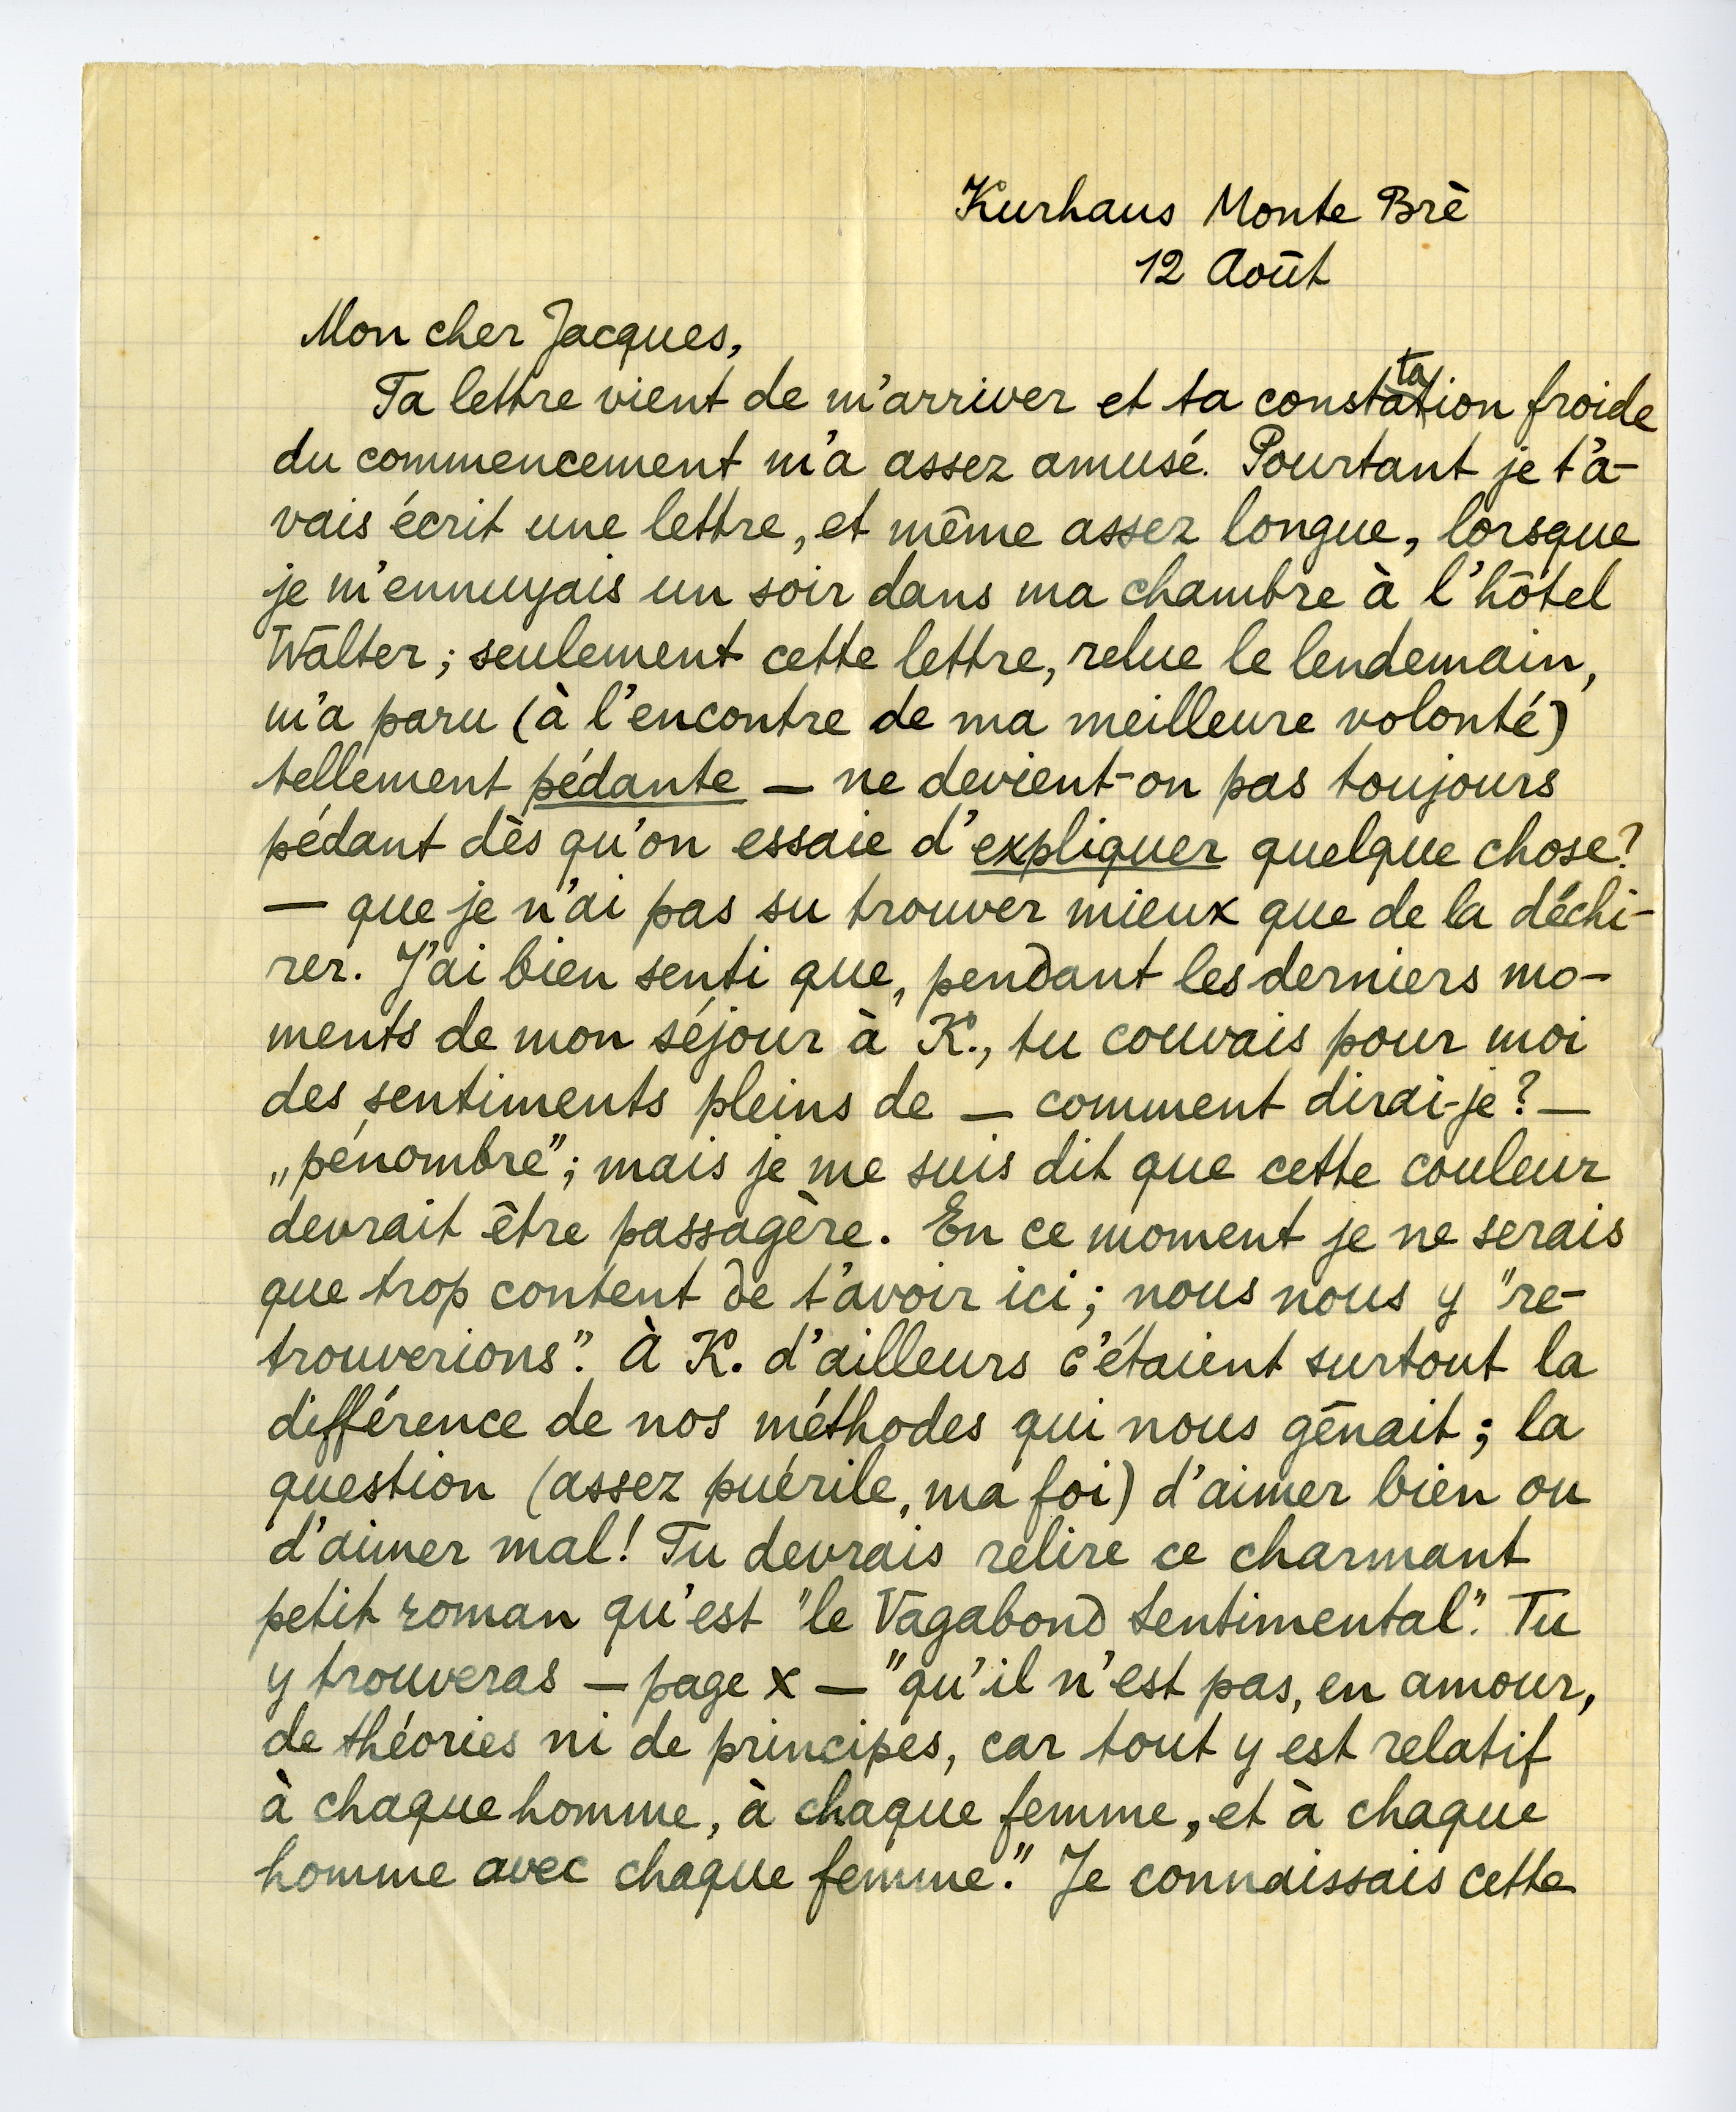 Kurhaus Monte Brè
12 Août
Mon cher Jacques,
Ta lettre vient de m'arriver et ta constatation froide
du commencement m'a assez amusé. Pourtant je t'a-
vais écrit une lettre, et même assez longue, lorsque
je m'ennuyais un soir dans ma chambre à l'hôtel
Walter; seulement cette lettre, relue le lendemain,
m'a paru (à l'encontre de ma meilleure volonté)
tellement pédante — ne devient-on pas toujours
pédant dès qu'on essaie d'expliquer quelque chose?
— que je n'ai pas su trouver mieux que de la déchi-
rer. J'ai bien senti que, pendant les derniers mo-
ments de mon séjour à K., tu couvais pour moi
des sentiments pleins de — comment dirai-je? —
„pénombre"; mais je me suis dit que cette couleur
devrait être passagère. En ce moment je ne serais
que trop content de t'avoir ici; nous nous y "re-
trouverions". À K. d'ailleurs c'étaient surtout la
différence de nos méthodes qui nous gênait; la
question (assez puérile, ma foi) d'aimer bien ou
d'aimer mal! Tu devrais relire ce charmant
petit roman qu'est "le Vagabond Sentimental". Tu
y trouveras — page x — "qu'il n'est pas, en amour,
de théories ni de principes, car tout y est relatif
à chaque homme, à chaque femme, et à chaque
homme avec chaque femme." Je connaissais cette